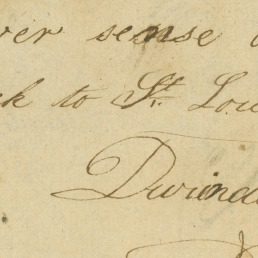 ver sense
k to St. Lou
Dwind